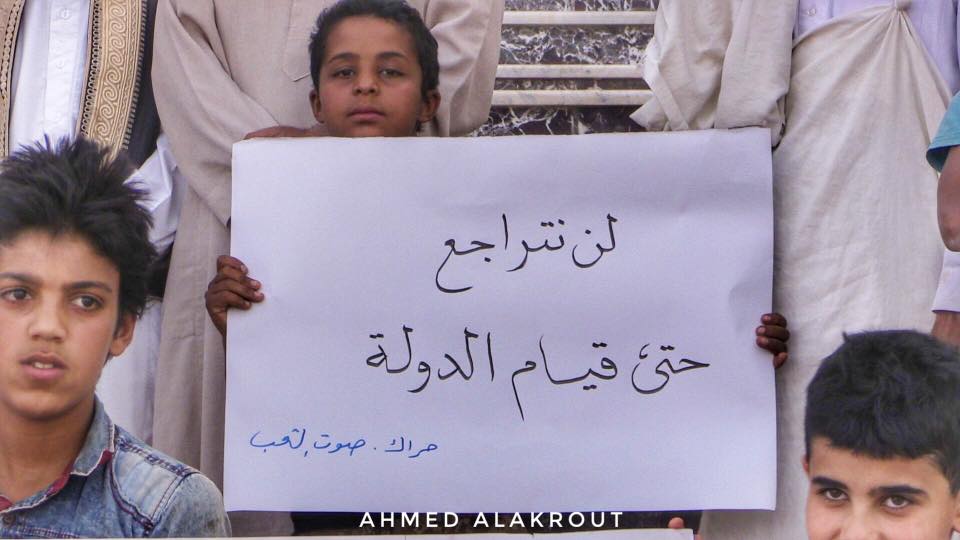 لن نتراجع
حتى قيام الدولة
حراك. صوت الشعب
AHMED ALAKROUT